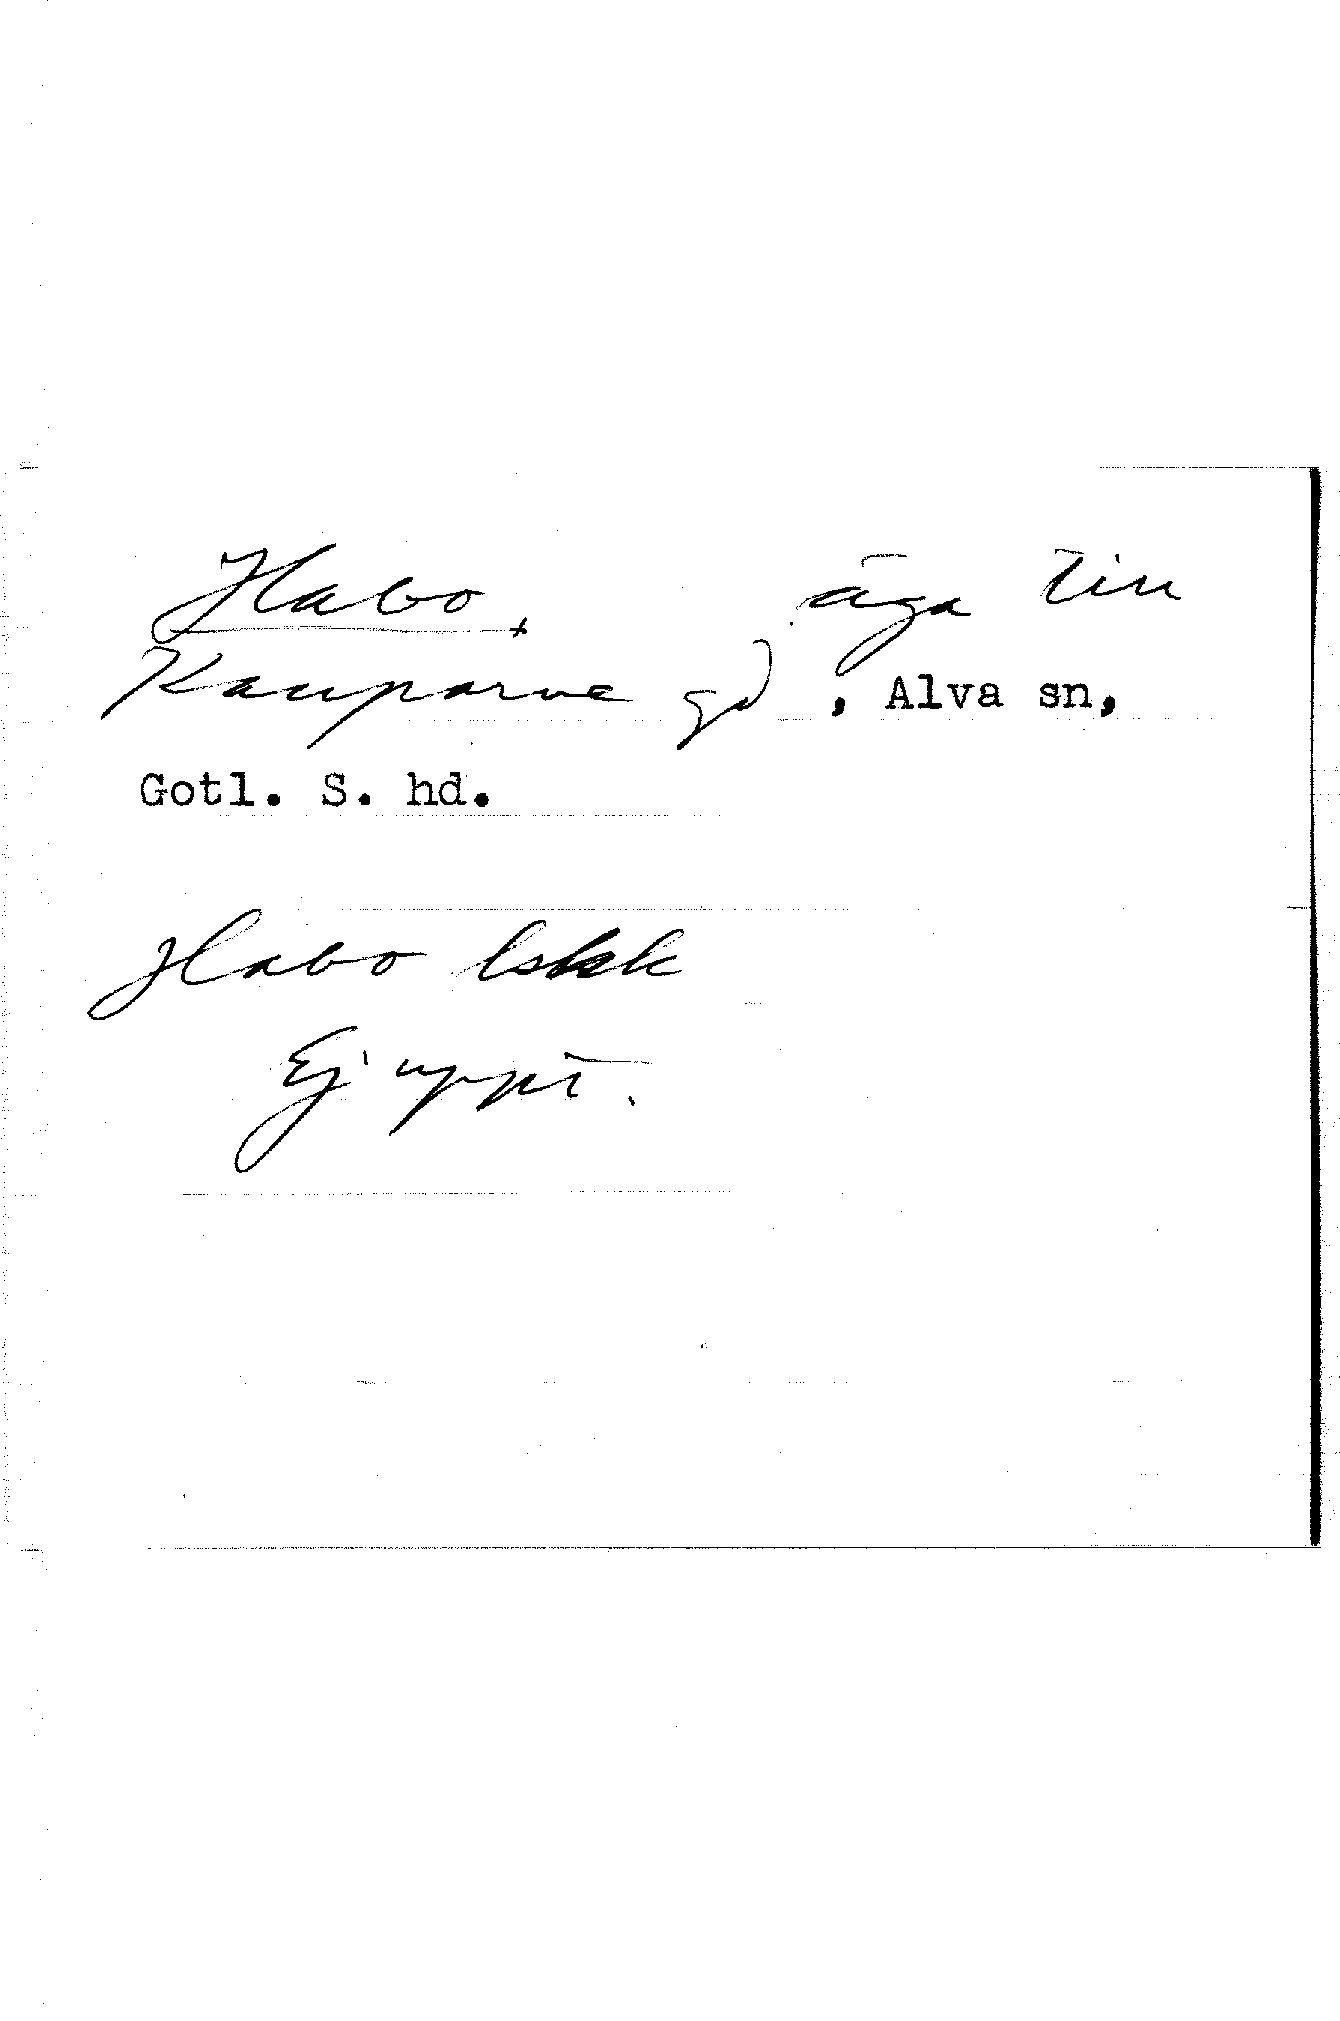 Habo, äga till
Kauparve gd, Alva sn,
Gotl. S. hd.
Habo lskk
Ej uppt.